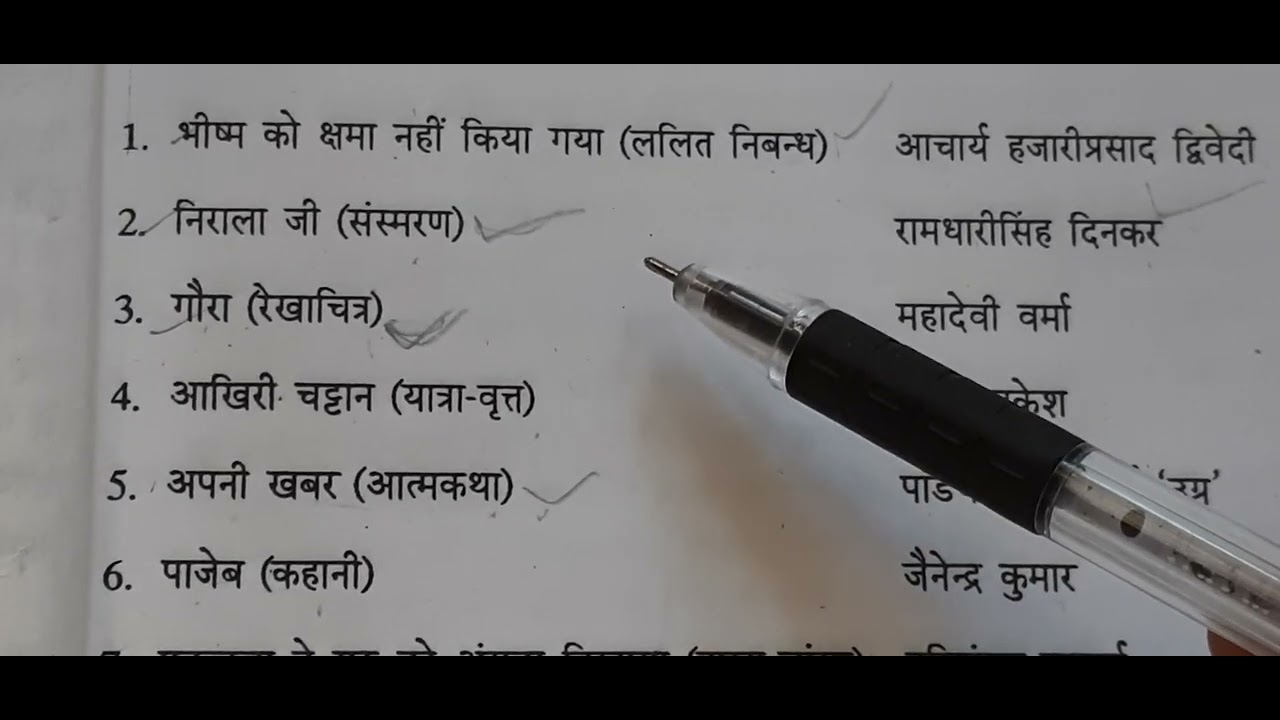 1. भीष्म को क्षमा नहीं किया गया (ललित निबन्ध) आचार्य हजारीप्रसाद द्विवेदी
2. निराला जी (संस्मरण) रामधारीसिंह दिनकर
3. गौरा (रेखाचित्र) महादेवी वर्मा
4. आखिरी चट्टान (यात्रा-वृत्त)
5. अपनी खबर (आत्मकथा) 'उग्र'
6. पाजेब (कहानी) जैनेन्द्र कुमार